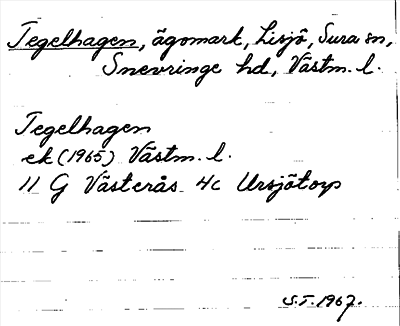 Tegelhagen, ägomark, Lisjö, Sura sn,
Snevringe hd, Västm. l.
Tegelhagen
ek (1965) Västm. l.
11 G Västerås 4c Ursjötorp
S.T. 1967.